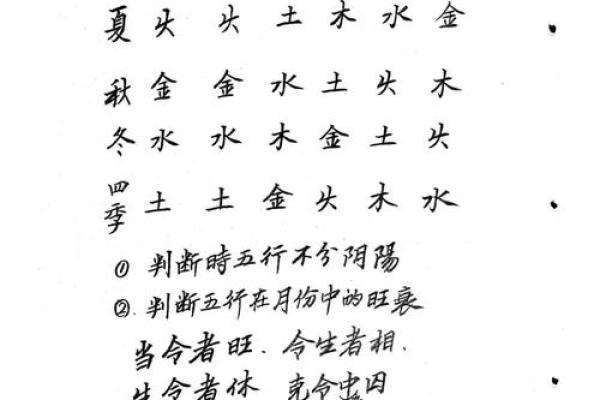 夏 火 火 土 木 水 金
秋 金 金 水 土 火 木
冬 水 水 木 金 土 火
四季 土 土 金 火 木 水
① 判断時五行不分阴陽
②.判断五行在月份中的旺衰
当令者旺.令生者相.
生令者休 克令者囚